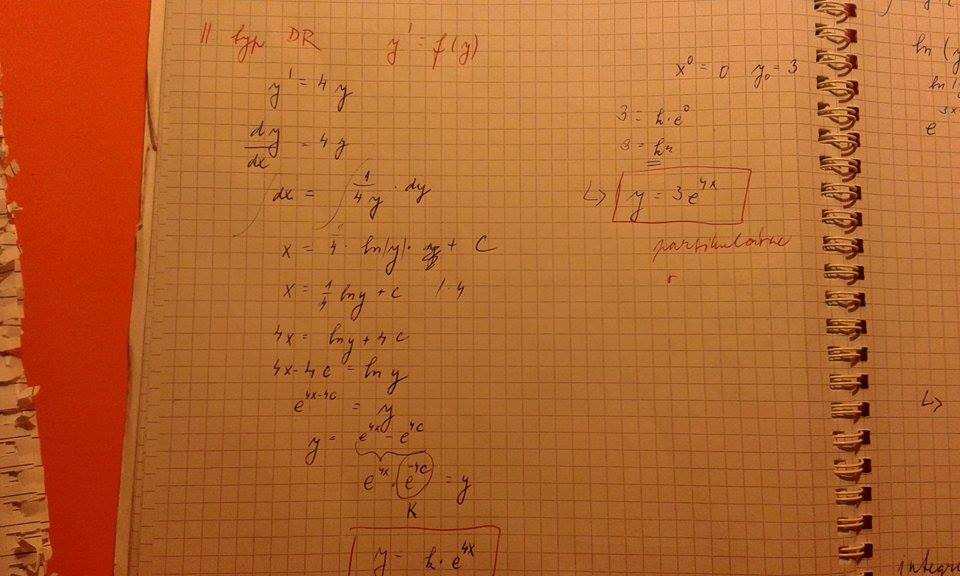 II typ DR y' = f(y)
y' = 4y
dy/dx = 4y
∫dx = ∫ 1/4y · dy
x = 4 · ln|y| · + C
x = 1/4 ln y + C / · 4
4x = ln y + 4C
4x - 4C = ln y
e^4x-4C = y
y = e^4x - e^4C
e^4x · e^-4C = y
K
y = k · e^4x
x^0 = 0 y_0 = 3
3 = k · e^0
3 = k
↳ y = 3e^4x
ln (y
ln
3x
e
↳
integr